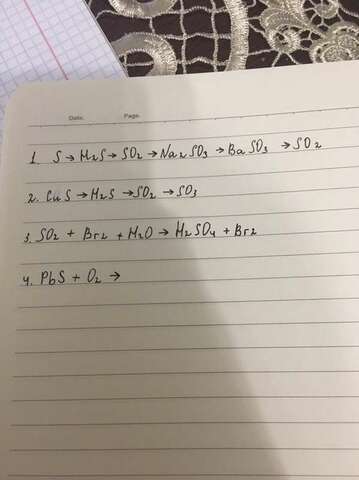 Date. Page.
1. S → H2S → SO2 → Na2SO3 → BaSO3 → SO2
2. CuS → H2S → SO2 → SO3
3. SO2 + Br2 + H2O → H2SO4 + Br2
4. PbS + O2 →